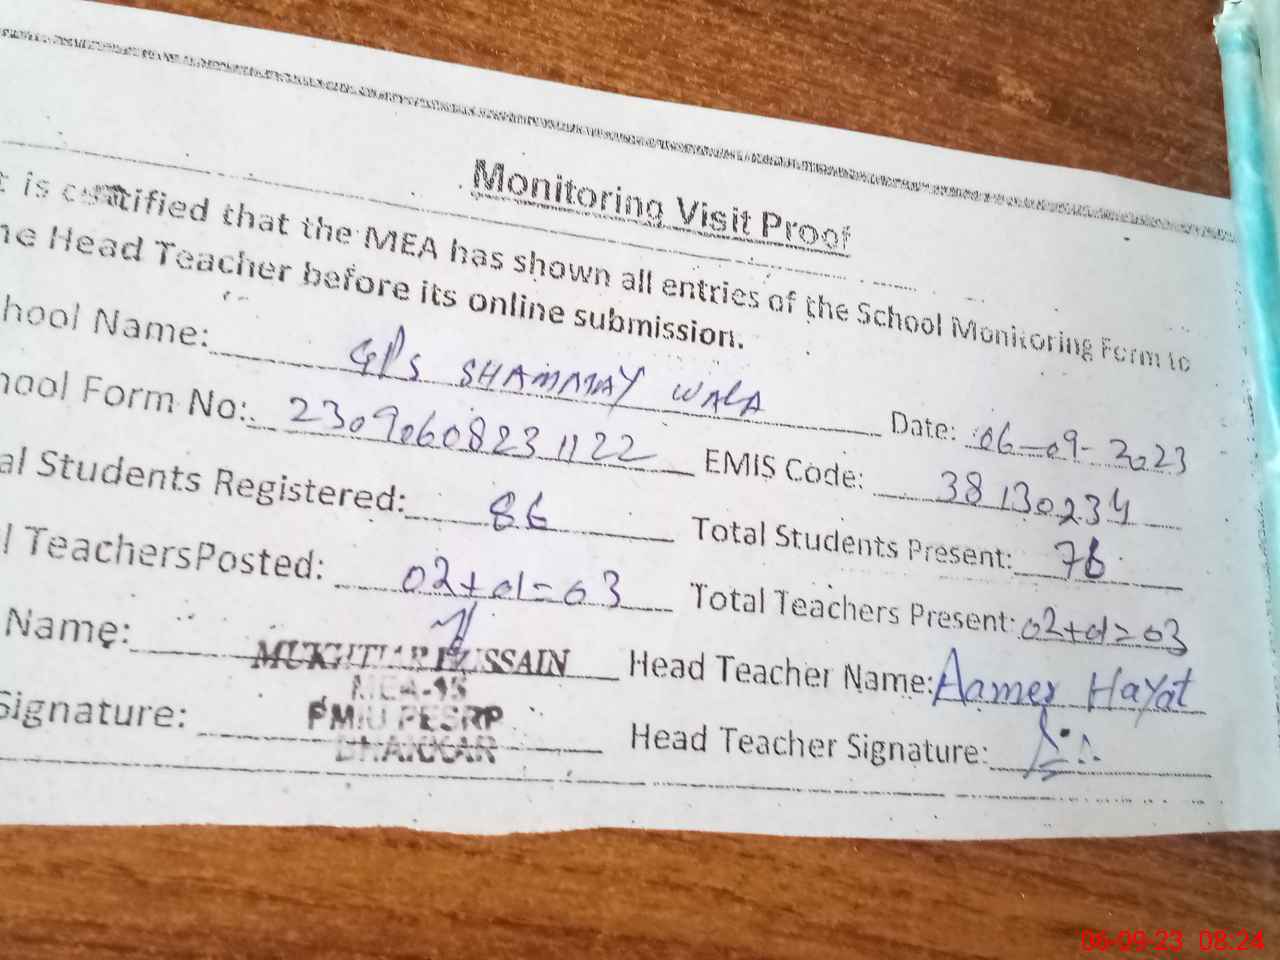 Monitoring Visit Proof
t is certified that the MEA has shown all entries of the School Monitoring Form to
he Head Teacher before its online submission.
hool Name: GPS SHAMMAY WALA Date: 06-09-2023
hool Form No: 23090608231122 EMIS Code: 38130234
al Students Registered: 86 Total Students Present: 78
l TeachersPosted: 02+01=03 Total Teachers Present: 02+01=03
Name: MUKHTIAR HUSSAIN Head Teacher Name: Aamer Hayat
MEA-15
Signature: PMIU PESRP Head Teacher Signature:
BHAKKAR
06-09-23 08:24